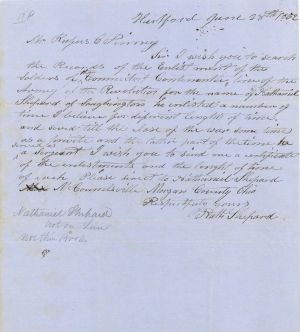 Hartford June 28th 1852
Mr Rufus C
Sir I wish you to search
the Records of the Enlistments of the
Soldiers of Connecticut Continental line of the
Army of the Revolution for the name of Nathaniel
Shepard of Southington he enlisted a number of
time I believe for different lenght of time
and served till the close of the war some time
as a private and the latter part of the time he
served as a Sergeant I wish you to send me a certificate
of the enlistments and the lenght of time
of each Please direct to Nathaniel Shepard
McConnelsville Morgan County Ohio
Respectfully Yours
Nathl Shepard
Nathaniel Shepard
not in Line